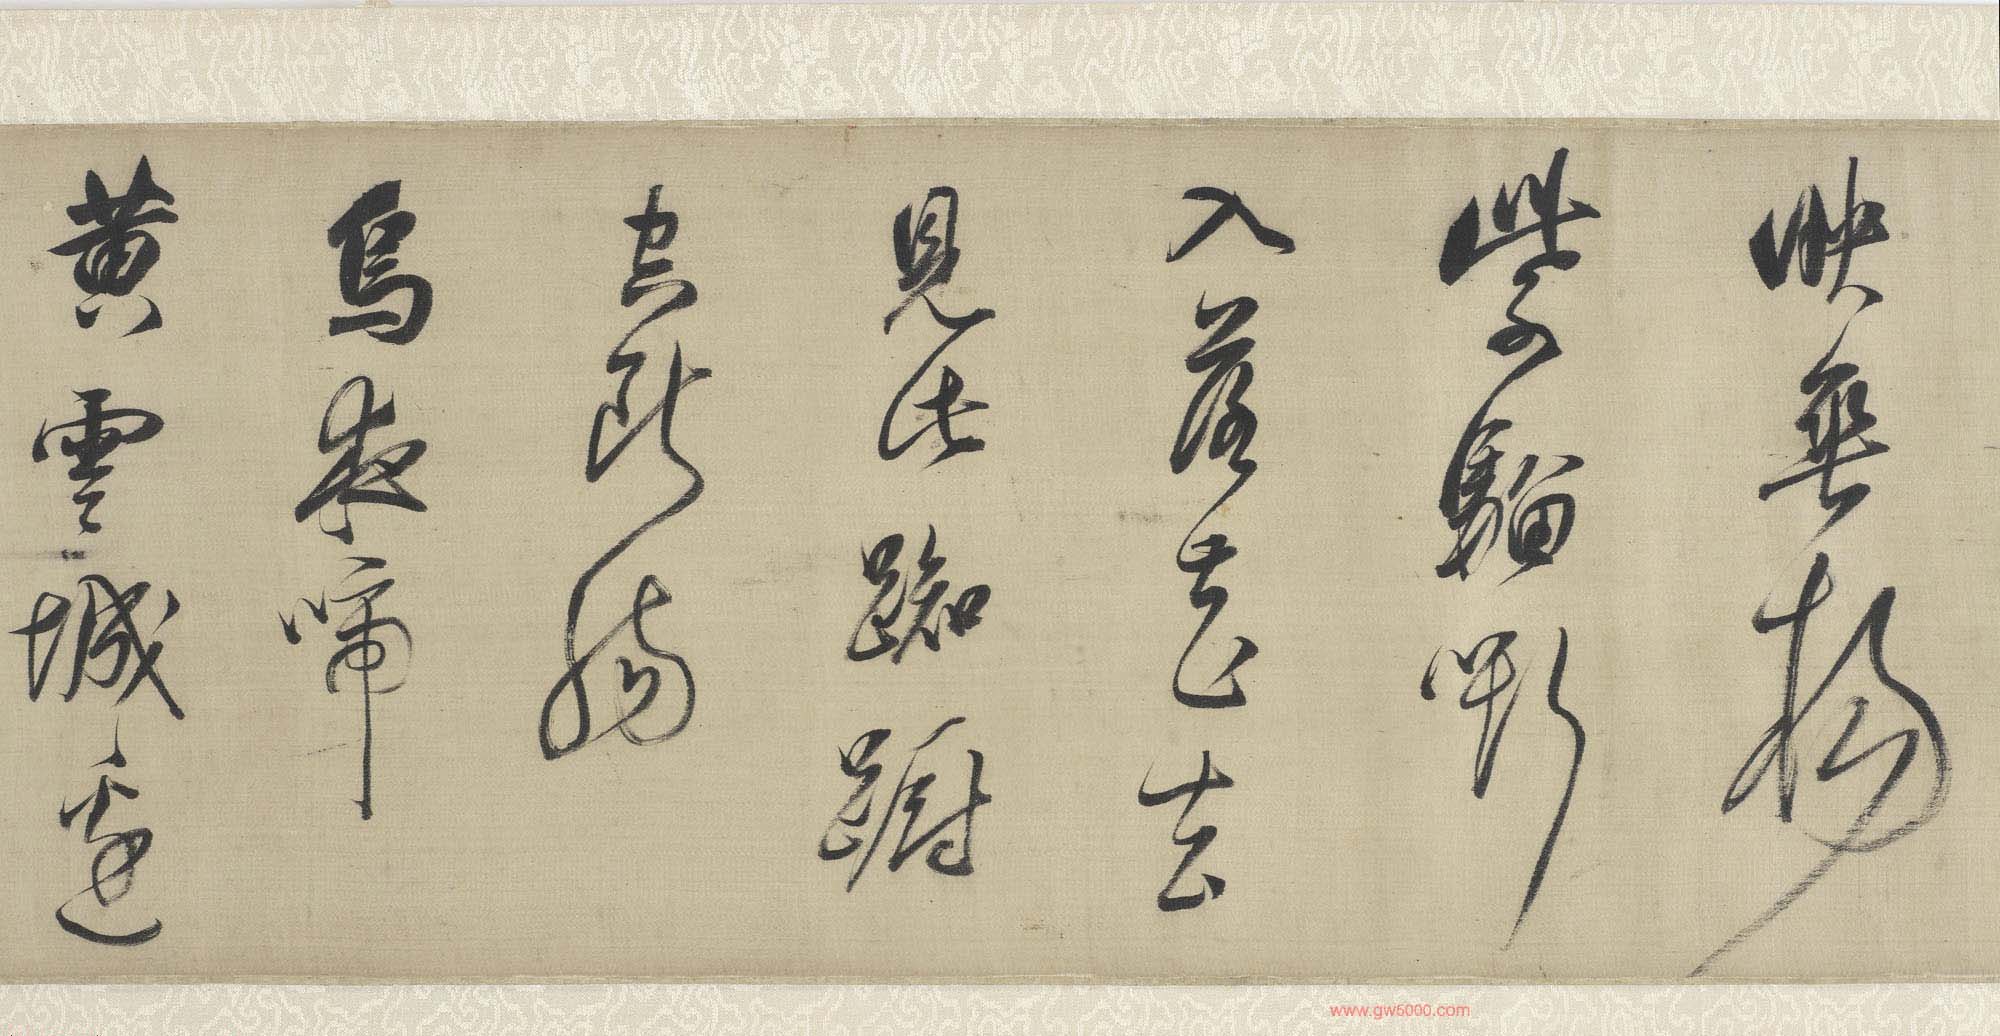 映垂楊
紫騮嘶
入落花去
見此踟躕
空斷腸
烏夜啼
黃雲城邊
www.gw5000.com